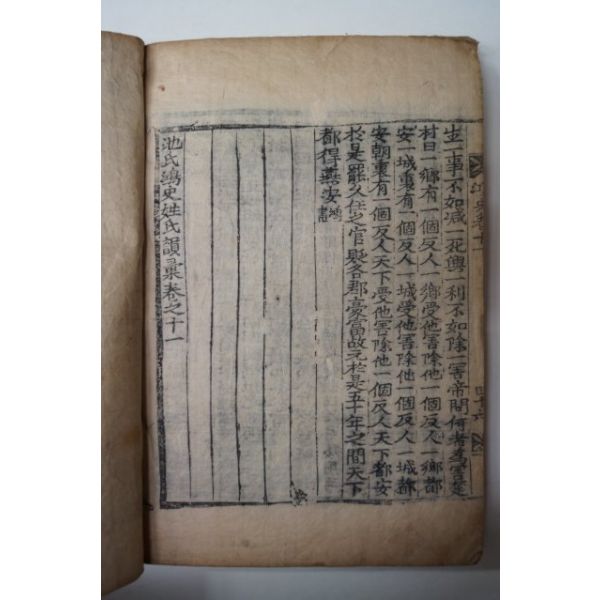 生一事不如减一死興一利不如除一害帝問何者為害楚
材曰一鄉有一個反人一鄉受他害除他一個反人一鄉都
安一城裏有一個反人一城受他害除他一個反人一城都
安朝裏有一個反人天下受他害除他一個反人天下都安
於是罷久任之官貶各郡豪富故元於是五十年之間天下
都得燕安鴻書
池氏鴻史姓氏韻彙卷之十一
鴻史卷十
四十六